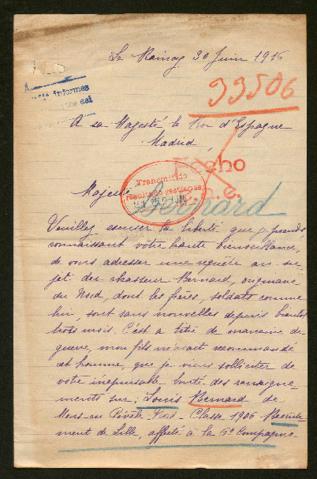 Le Raincy 30 Juin 1916
33506
A sa Majesté le Roi d'Espagne
Madrid
Hecho
Majesté
Bernard
Veuillez excuser la liberté que je prends
connaissant votre haute bienveillance,
de vous adresser une requête au su-
jet du chasseur Bernard, originaire
du Nord, dont les frères, soldats comme
lui, sont sans nouvelles depuis bientôt
trois mois. C'est à titre de marraine de
guerre, mon fils m'ayant recommandé
cet homme, que je viens solliciter de
votre inépuisable bonté, des renseigne-
ments sur: Louis Bernard de
Mons-en Nord - Classe 1906 Recrute-
ment de Lille, affecté à la 6e Compagnie